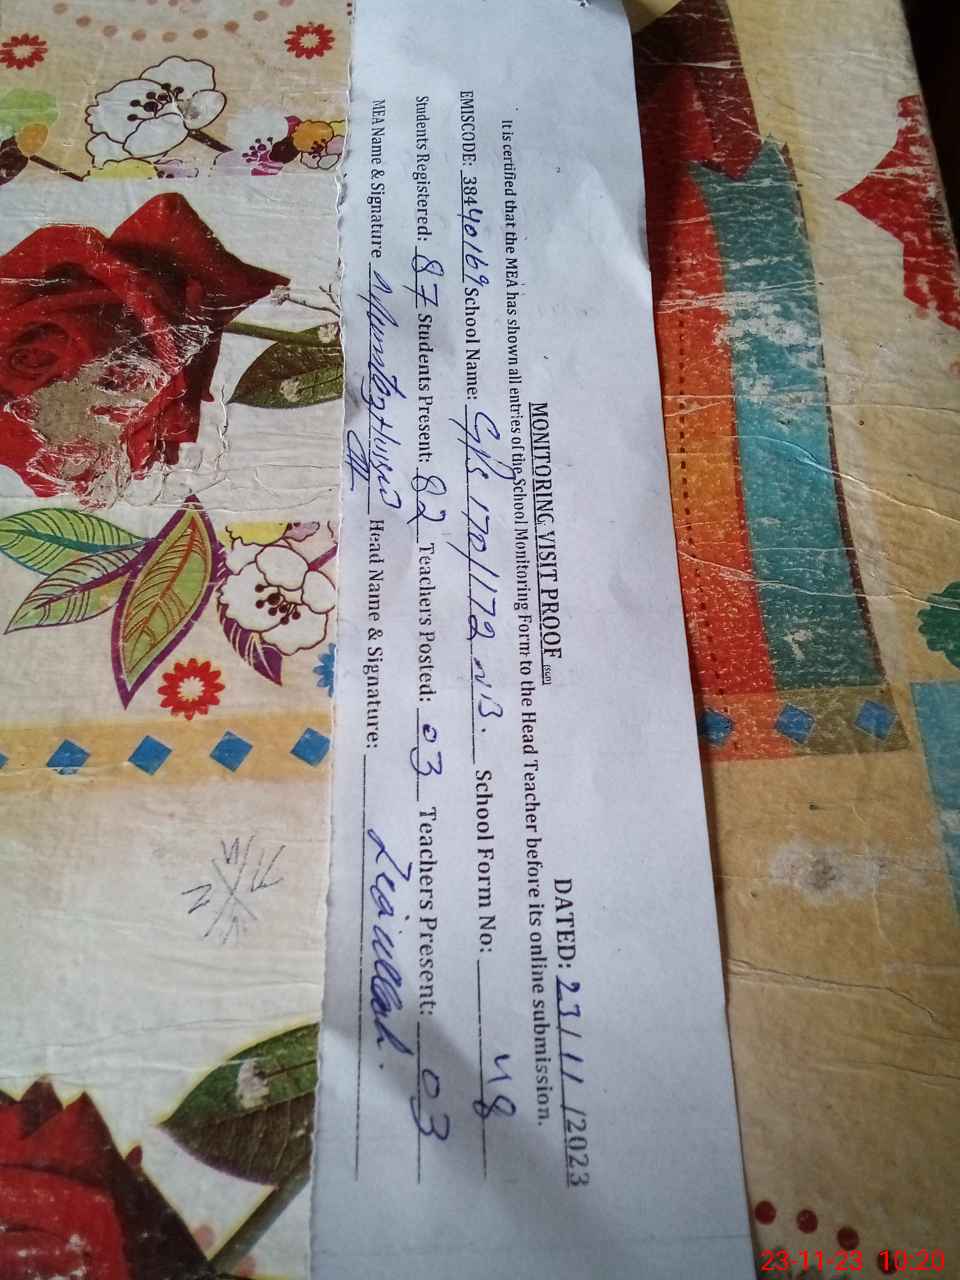 MONITORING VISIT PROOF (SGD)
DATED: 23/11/2023
It is certified that the MEA has shown all entries of the School Monitoring Form to the Head Teacher before its online submission.
EMISCODE: 38440169 School Name: G/S 170/172 NB. School Form No: 48
Students Registered: 87 Students Present: 82 Teachers Posted: 03 Teachers Present: 03
MEA Name & Signature Head Name & Signature: Zia ullah.
23-11-23 10:20